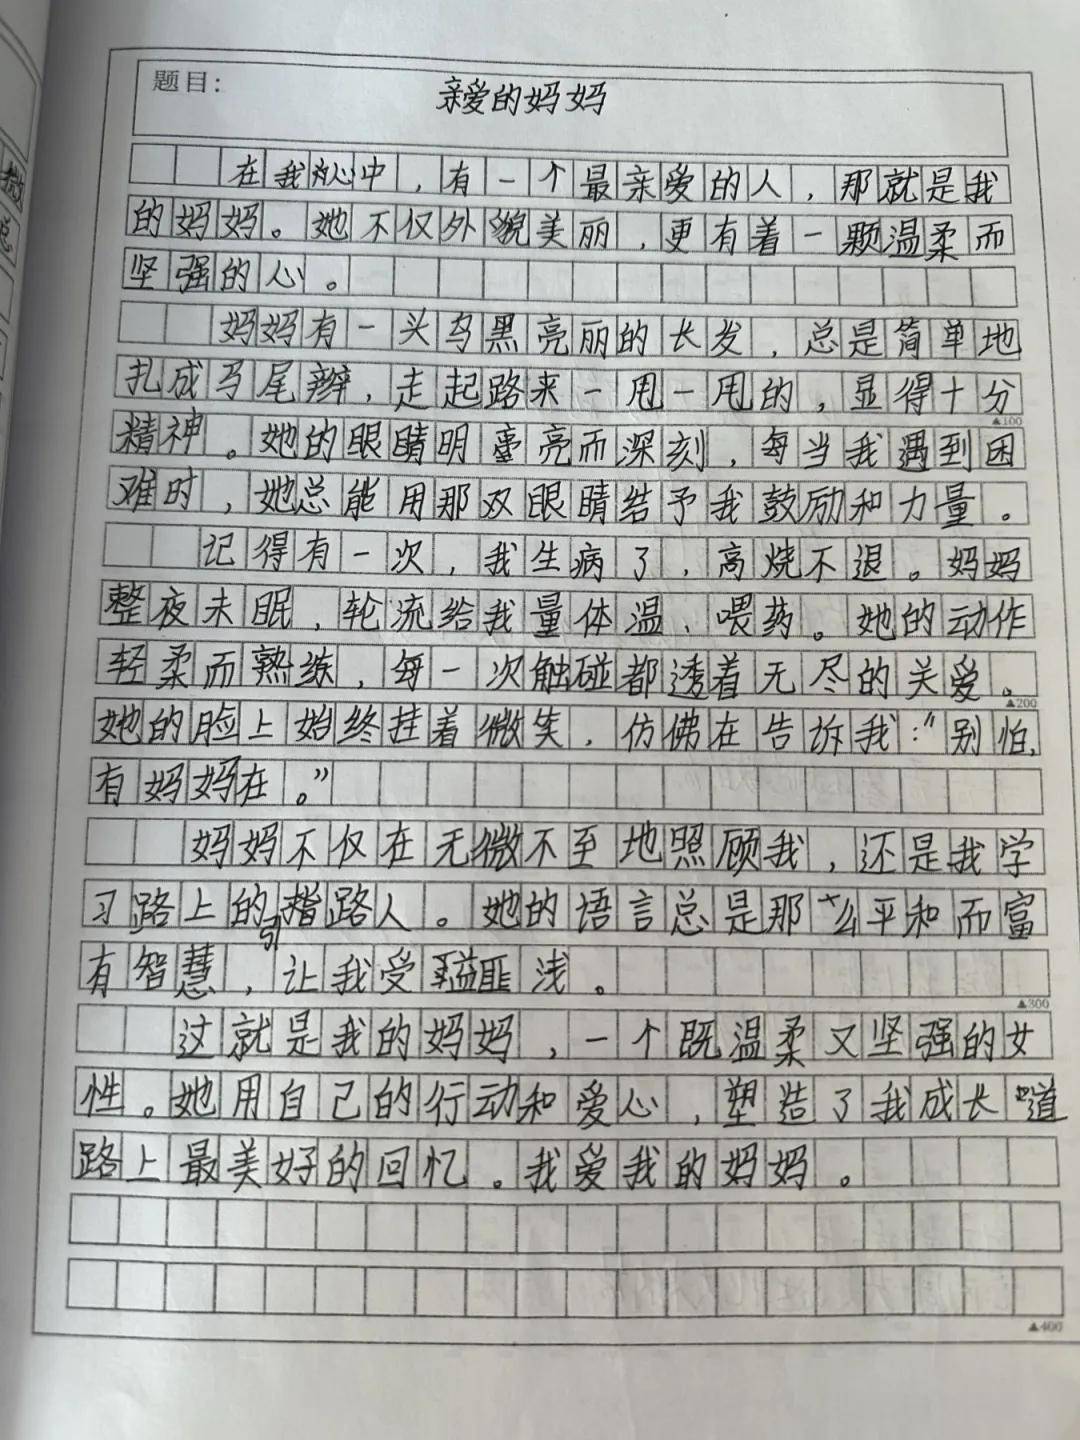 题目：
亲爱的妈妈
在我心中，有一个最亲爱的人，那就是我
的妈妈。她不仅外貌美丽，更有着一颗温柔而
坚强的心。
妈妈有一头乌黑亮丽的长发，总是简单地
扎成马尾辫，走起路来一甩一甩的，显得十分
▲100
精神。她的眼睛明亮而深刻，每当我遇到困
难时，她总能用那双眼睛结予我鼓励和力量。
记得有一次，我生病了，高烧不退。妈妈
整夜未眠，轮流给我量体温、喂药。她的动作
轻柔而熟练，每一次触碰都透着无尽的关爱。
▲200
她的脸上始终挂着微笑，仿佛在告诉我：“别怕，
有妈妈在。”
妈妈不仅在无微不至地照顾我，还是我学
习路上的指路人。她的语言总是那么平和而富
引
有智慧，让我受益匪浅。
▲300
这就是我的妈妈，一个既温柔又坚强的女
性。她用自己的行动和爱心，塑造了我成长道
路上最美好的回忆。我爱我的妈妈。
▲400